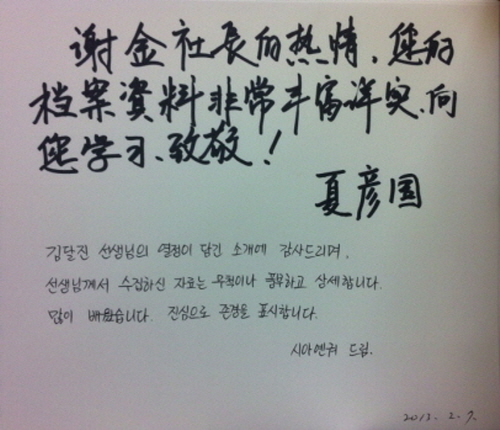 谢金社长的热情、您的
档案资料非常丰富详实、向
您学习、致敬！
夏彦国
김달진 선생님의 열정이 담긴 소개에 감사드리며,
선생님께서 수집하신 자료는 무척이나 풍부하고 상세합니다.
많이 배웠습니다. 진심으로 존경을 표시합니다.
시아옌궈 드림.
2013. 2. 7.